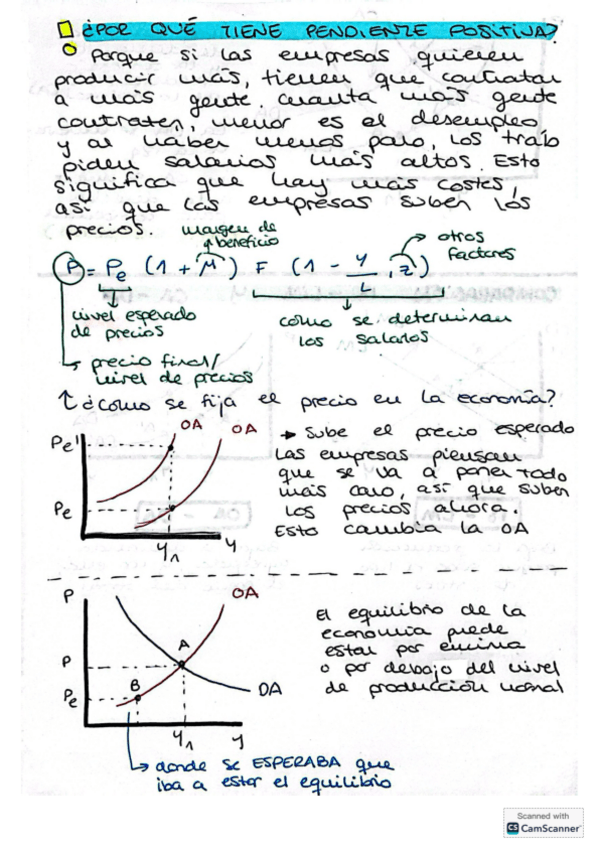 ¿POR QUÉ TIENE PENDIENTE POSITIVA?
Porque si las empresas quieren
producir más, tienen que contratar
a más gente. Cuanta más gente
contraten, menor es el desempleo
y al haber menos paro, los trab
piden salarios más altos. Esto
significa que hay más costes,
así que las empresas suben los
precios.
margen de
beneficio
otros
factores
P = Pe (1 + M) F (1 - y/L, z)
nivel esperado
de precios
como se determinan
los salarios
precio final/
nivel de precios
¿como se fija el precio en la economía?
Pe' OA OA
Pe
y1 y
→ Sube el precio esperado
Las empresas piensan
que se va a poner todo
más caro, así que suben
los precios ahora.
Esto cambia la OA
P OA
A
P
B
Pe DA
y1 y
El equilibrio de la
economía puede
estar por encima
o por debajo del nivel
de producción normal
donde se ESPERABA que
iba a estar el equilibrio
Scanned with
CS CamScanner